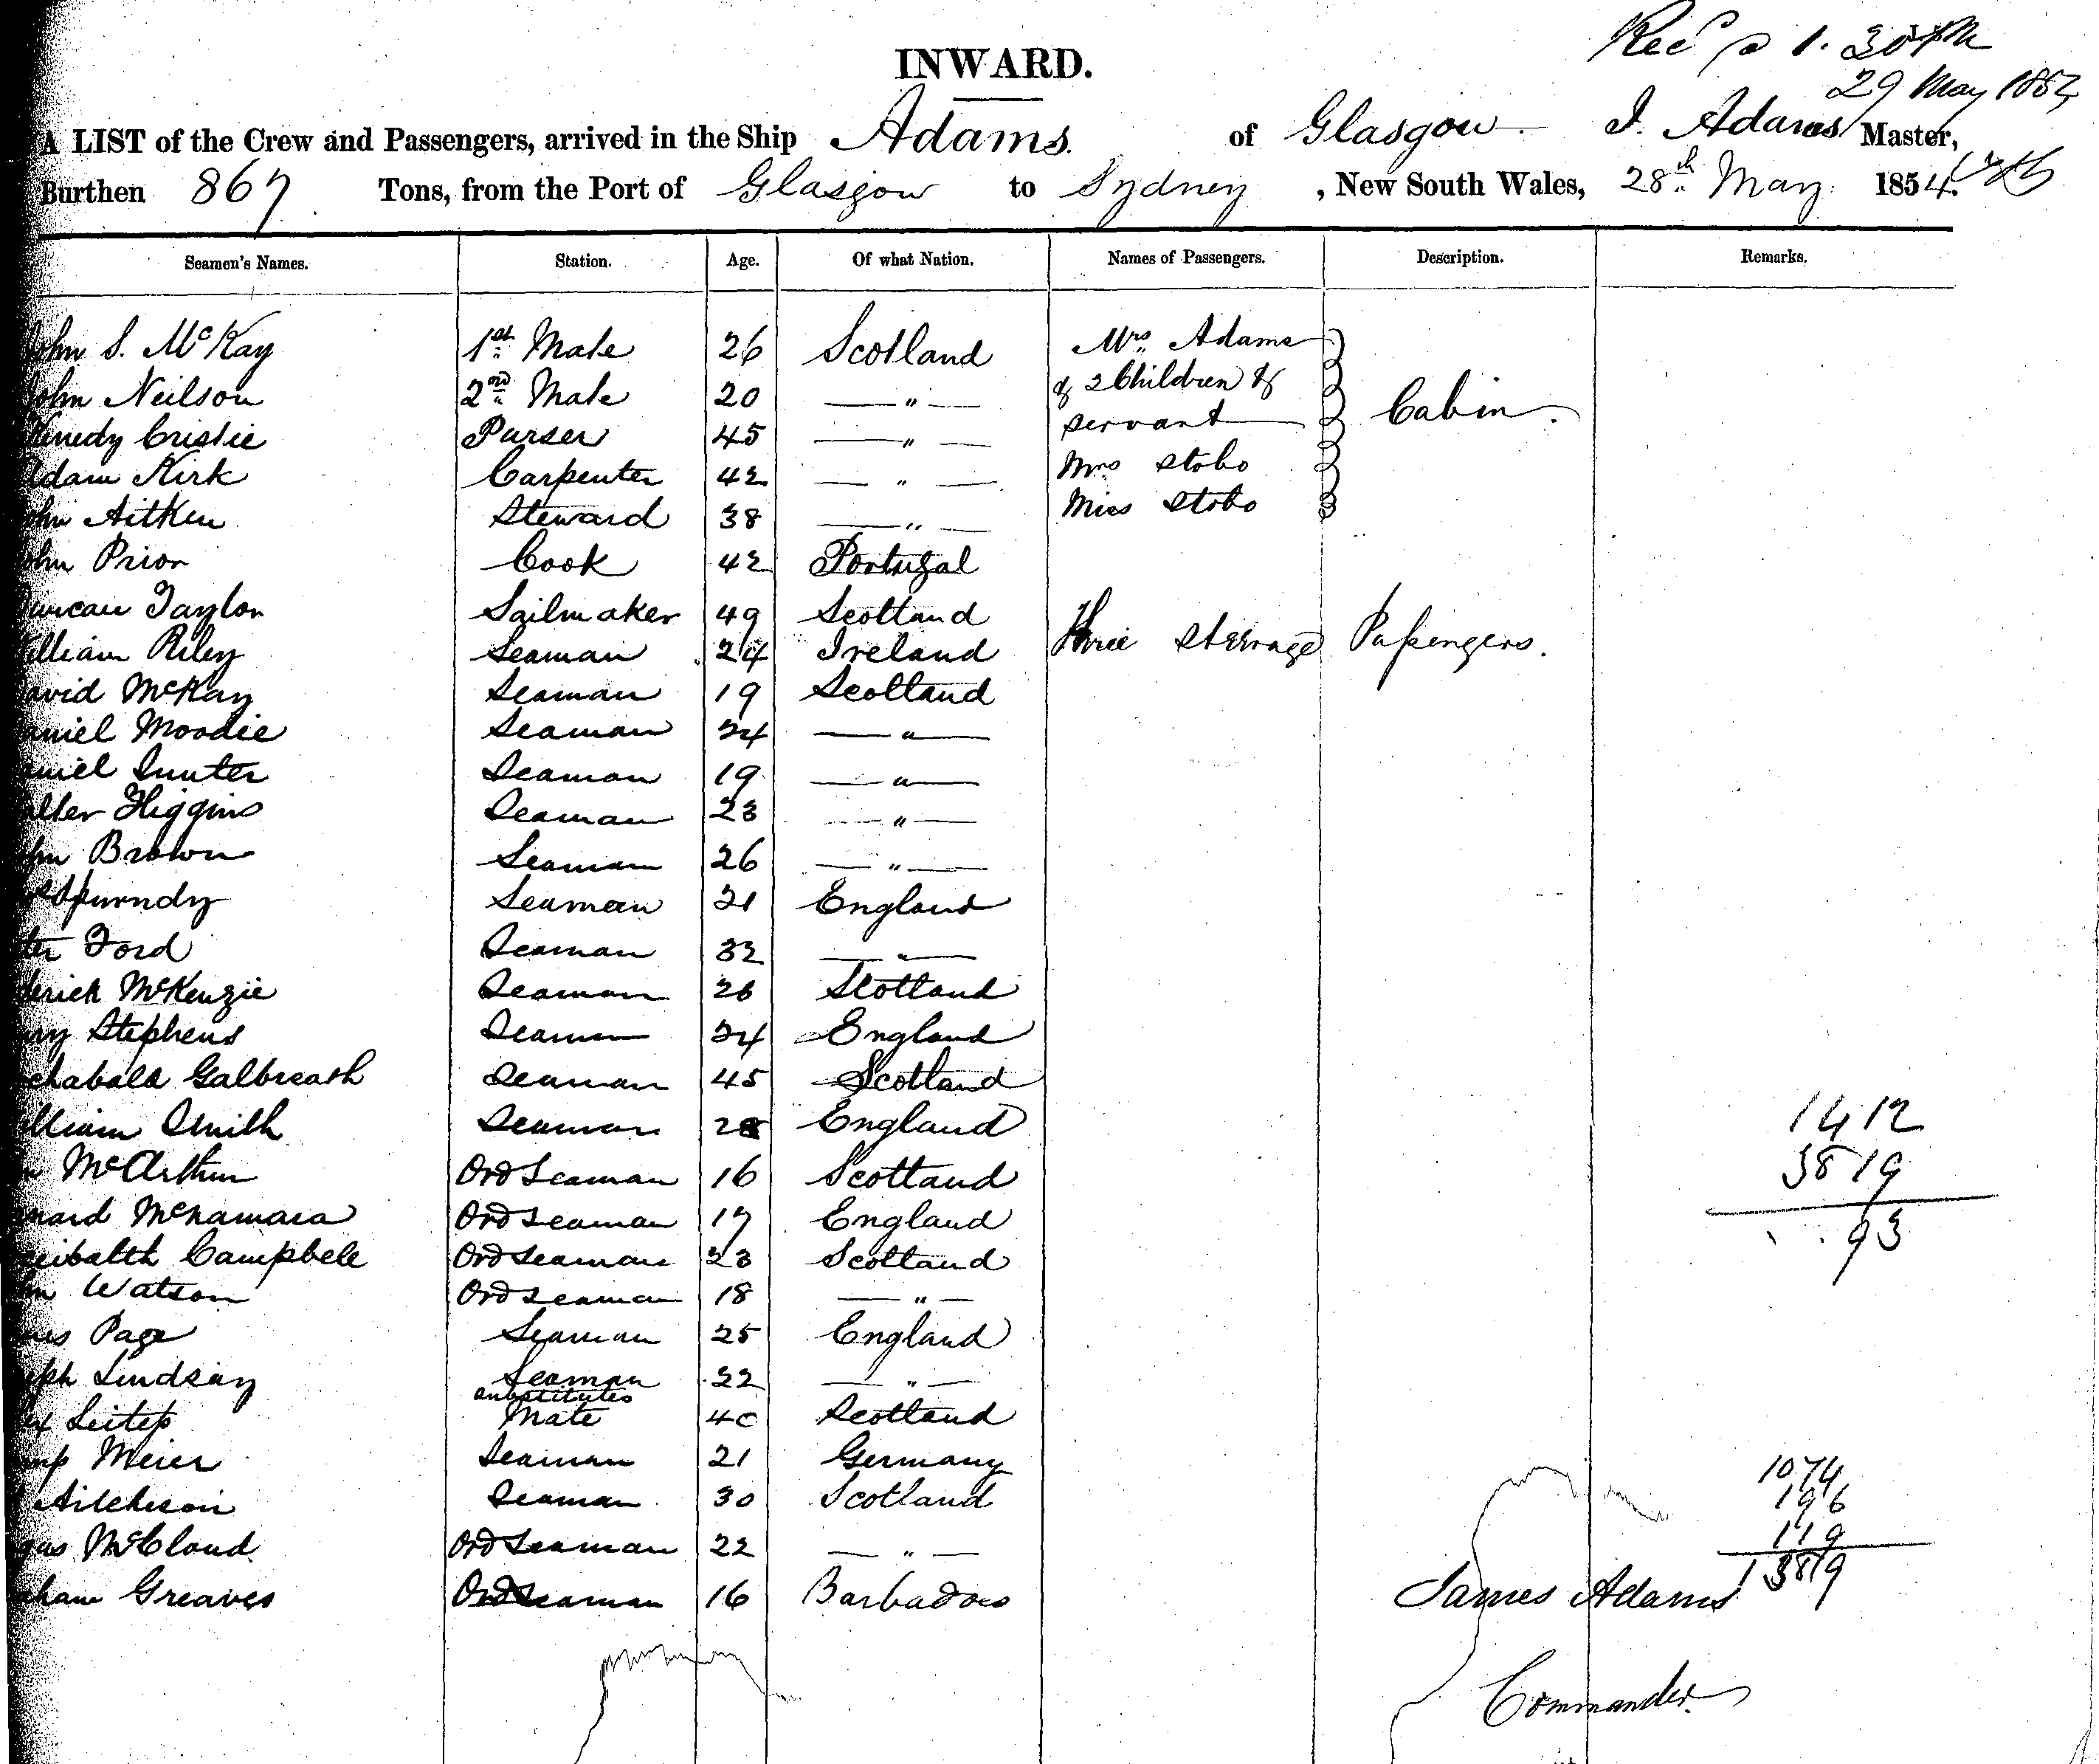 Recd @ 1.30 PM
29 May 1854
INWARD.
A LIST of the Crew and Passengers, arrived in the Ship Adams of Glasgow J. Adams Master,
Burthen 867 Tons, from the Port of Glasgow to Sydney, New South Wales, 28th May 1854.
Seamen's Names. Station. Age. Of what Nation. Names of Passengers. Description. Remarks.
John S. McKay 1st Mate 26 Scotland Mrs Adams
John Neilson 2nd Mate 20 — " — & 2 Children &
Cristie Purser 45 — " — servant Cabin.
Adam Kirk Carpenter 42 — " — Mrs Stobo
John Aitken Steward 38 — " — Miss Stobo
John Prior Cook 42 Portugal
Duncan Taylor Sailmaker 49 Scotland Three Steerage Passengers.
William Riley Seaman 24 Ireland
David McKay Seaman 19 Scotland
Daniel Moodie Seaman 24 — " —
Seaman 19 — " —
Walter Higgins Seaman 23 — " —
John Brown Seaman 26 — " —
Seaman 21 England
Ford Seaman 32 — " —
McKenzie Seaman 26 Scotland
Stephens Seaman 24 England
Galbreath Seaman 45 Scotland
William Smith Seaman England
McArthur Ord Seaman 16 Scotland
McNamara Ord Seaman 17 England
Campbele Ord Seaman 23 Scotland
Watson Ord Seaman 18 — " —
Page Seaman 25 England
Lindsay Seaman 22 — " —
substitutes
Mate 40 Scotland
Meier Seaman 21 Germany
Aitcheson Seaman 30 Scotland
McCloud Ord Seaman 22 — " —
Greaves Ord Seaman 16 Barbados
1412
93
1074
196
119
James Adams
Commander